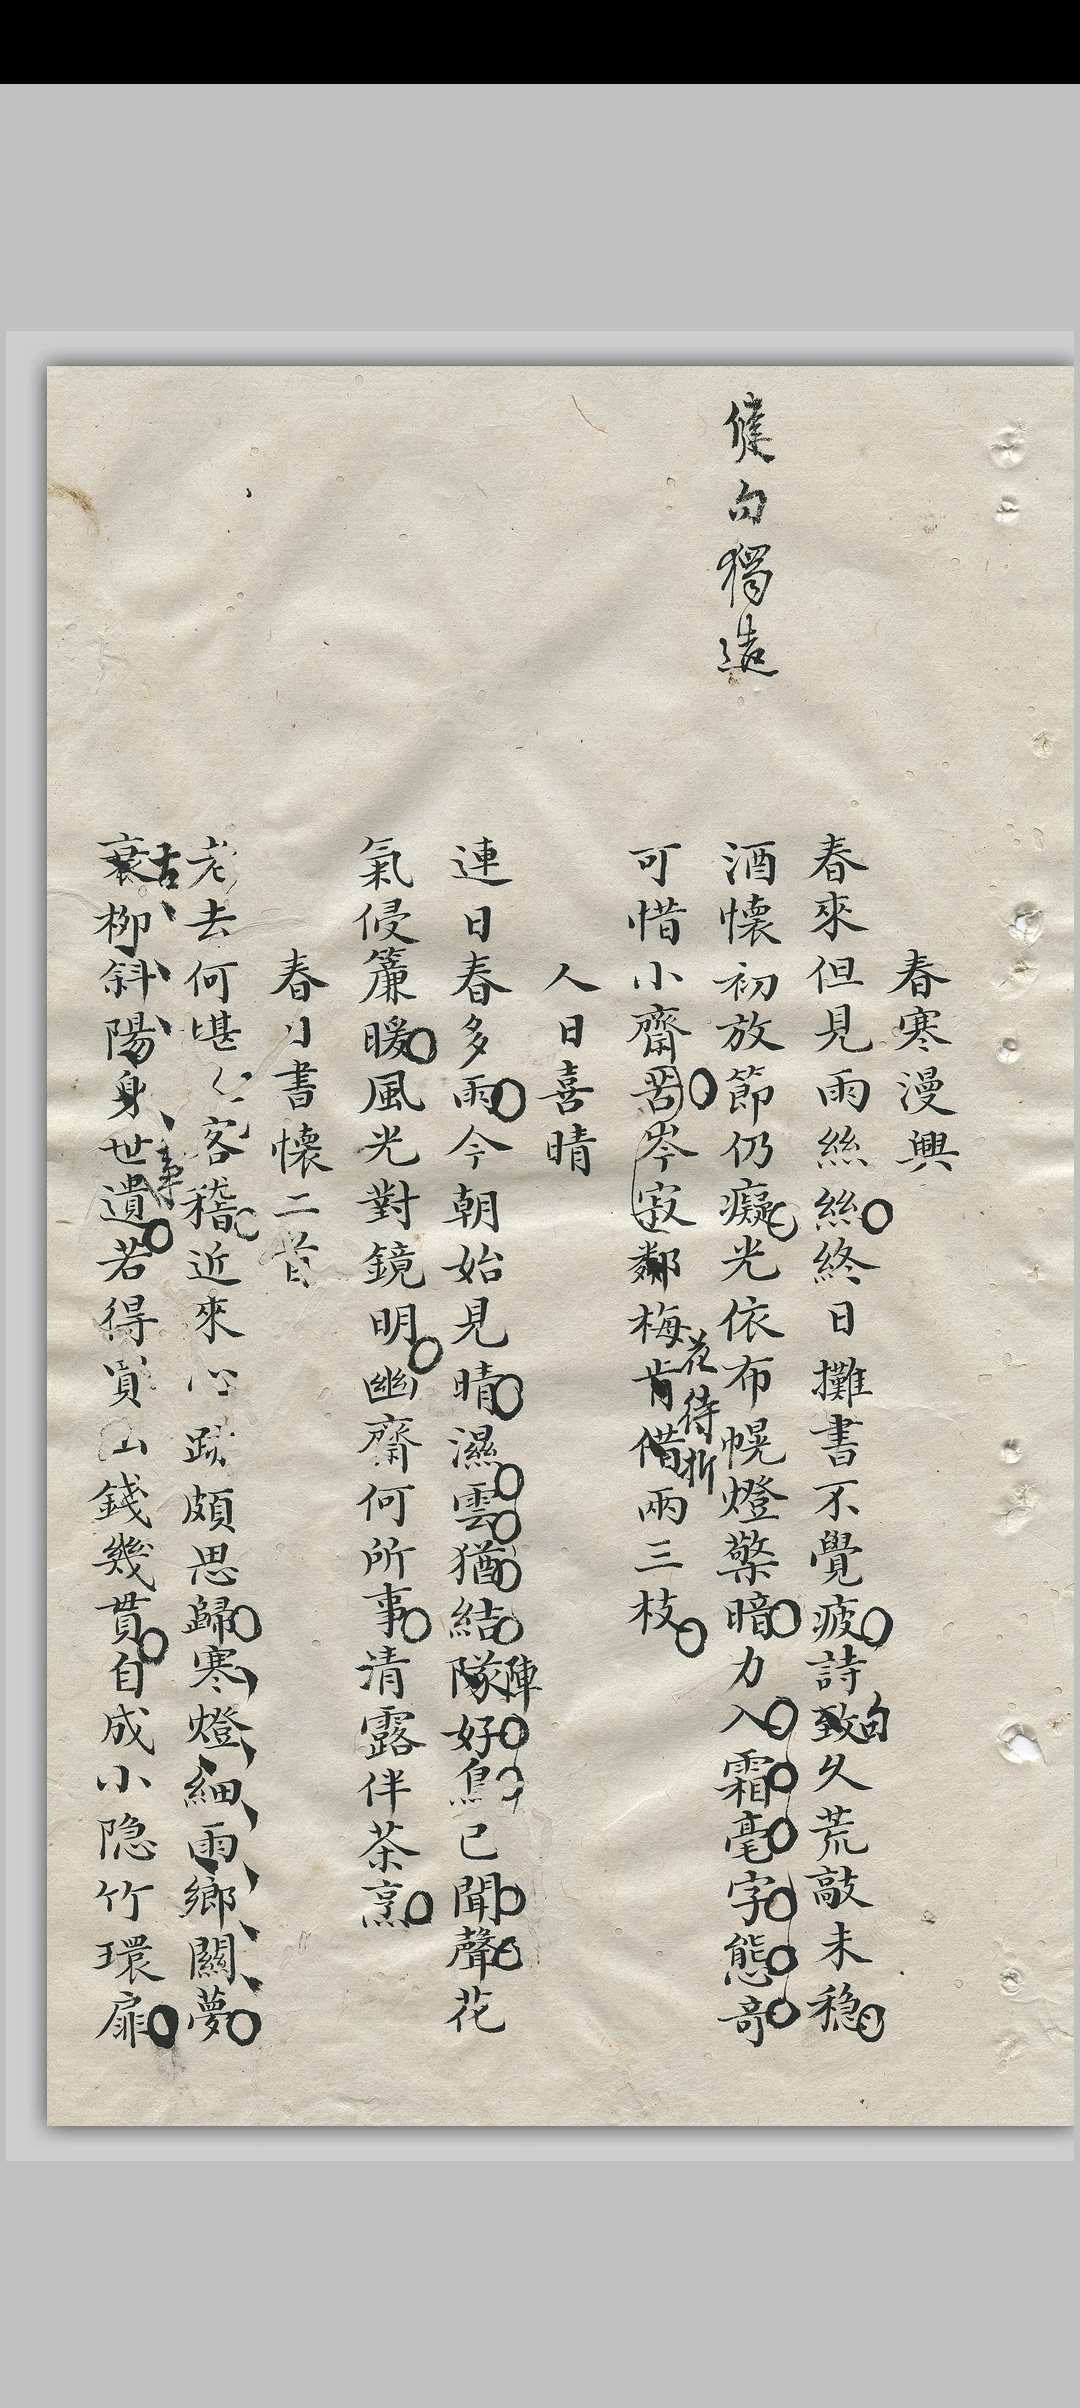 雋句獨造
春寒漫興
春來但見雨絲絲終日攤書不覺疲詩致久荒敲未穩
句
酒懷初放節仍癡光依布幌燈檠暗力入霜毫字態奇
可惜小齋苦岑寂鄰梅肯借兩三枝
花待折
人日喜晴
連日春多雨今朝始見晴濕雲猶結隊好鳥已聞聲花
陣
氣侵簾暖風光對鏡明幽齋何所事清露伴茶烹
春日書懷二首
老去何堪久客稽近來心跡頗思歸寒燈細雨鄉關夢
古
衰柳斜陽身世遺若得買山錢幾貫自成小隐竹環扉
事